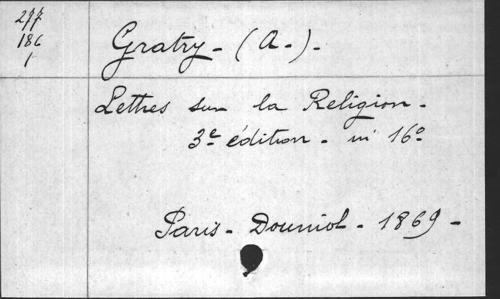 277
186
1
Gratry - (A.) -
Lettres sur la Religion -
3e édition - in 16o
Paris - Douniol - 1869 -